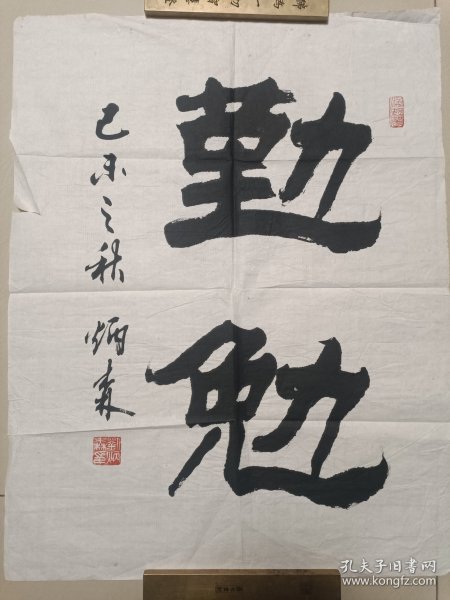 勤勉
己未之秋 炳森
孔夫子旧书网
www.kongfz.com